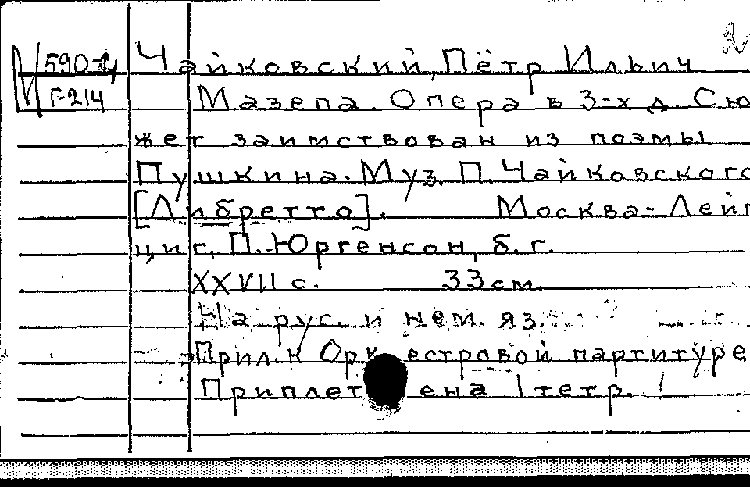 Чайковский, Пётр Ильич
Г-214
Мазепа. Опера в 3-х д. Сю
жет заимствован из поэмы
Пушкина. Муз. П. Чайковского
[Либретто]. Москва-Лейп
циг, П. Юргенсон, б. г.
XXVII с. 33 см.
На рус. и нем. яз.
Прил. к Оркестровой партитуре
Приплетена 1 тетр.